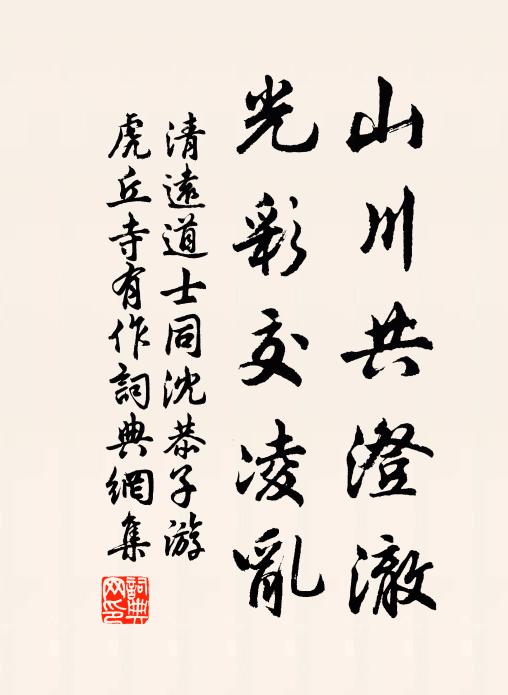 山川共澄澈
光彩交凌亂
清遠道士同沈恭子游
虎丘寺有作詞典網集
詞典
网印